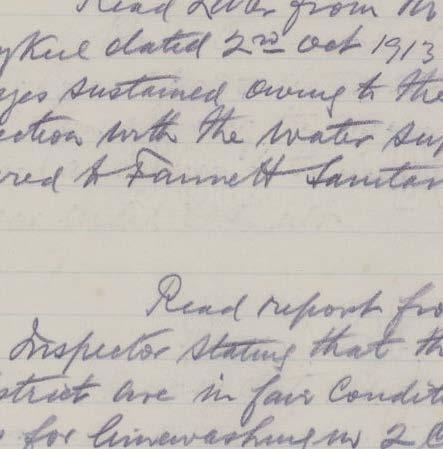 Read Letter from Mr
dated 2nd Oct 1913
ges sustained owing to the
ection with the water sup
red to Fannett Sanitar
Read report fro
Inspector stating that th
strict are in fair conditi
for limewashing 2 C